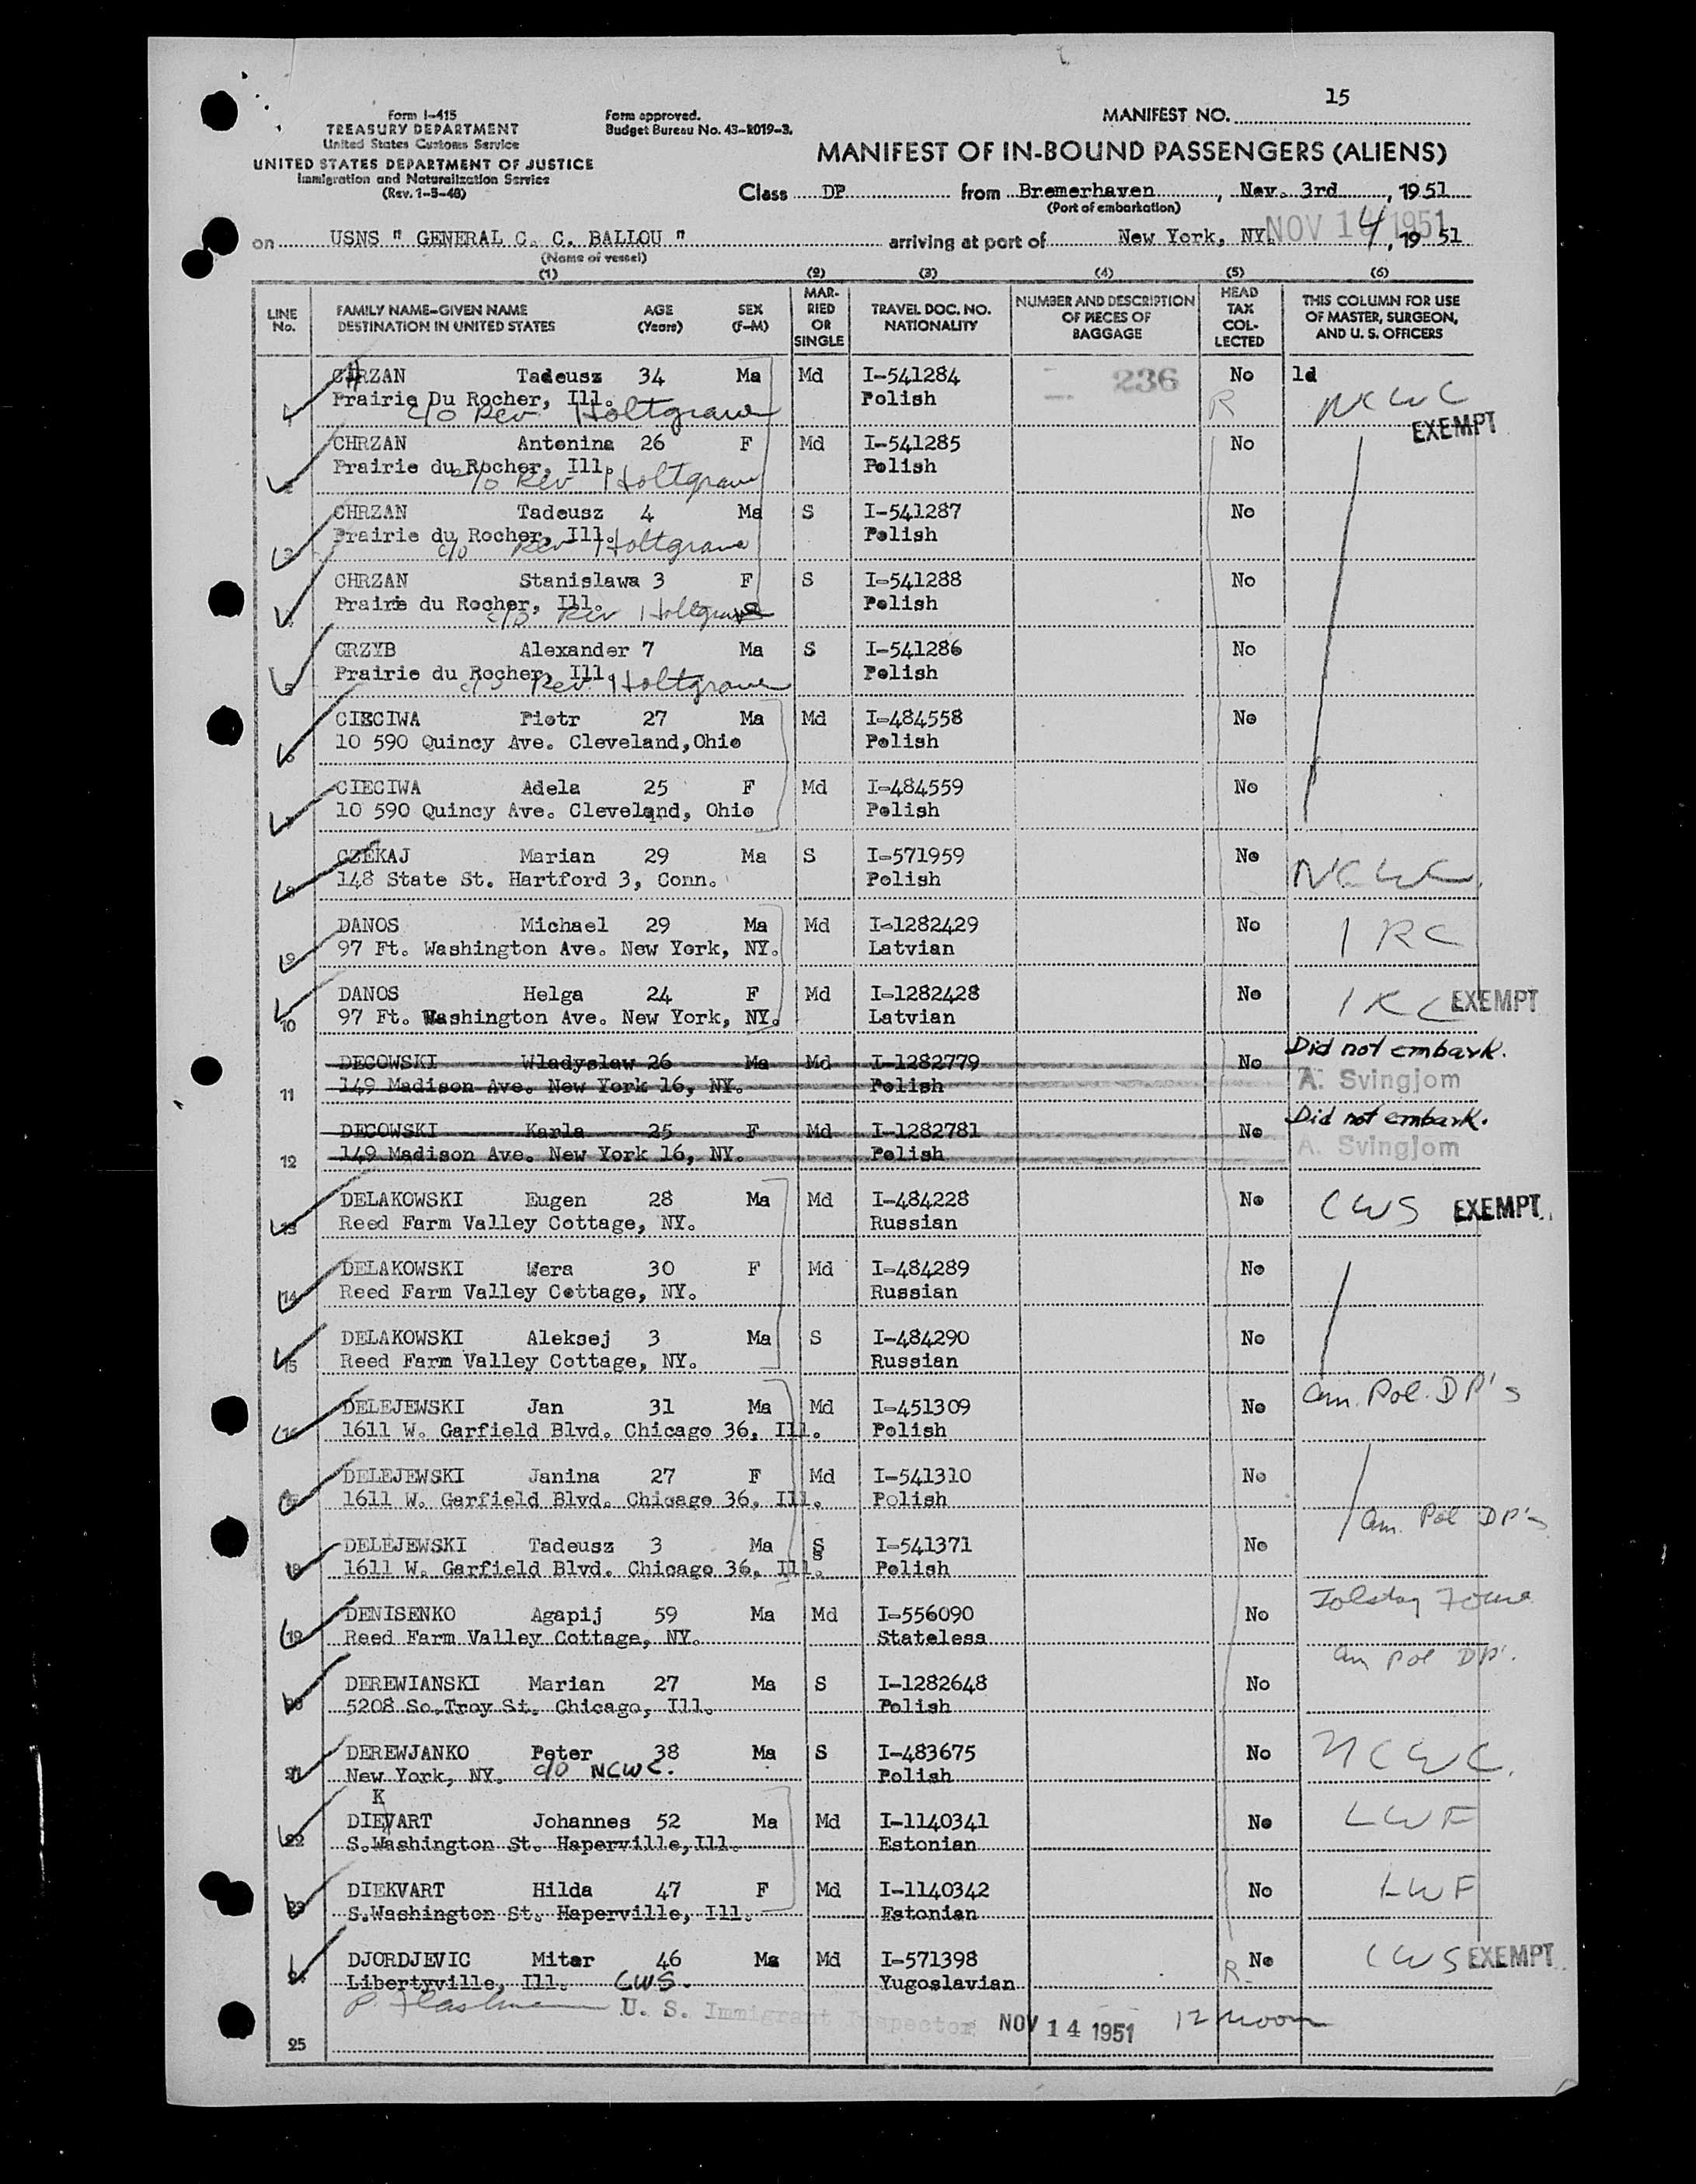 15
Form I-415
TREASURY DEPARTMENT
United States Customs Service
UNITED STATES DEPARTMENT OF JUSTICE
Immigration and Naturalization Service
(Rev. 1-5-48)
Form approved.
Budget Bureau No. 43-R019-3.
MANIFEST NO.
MANIFEST OF IN-BOUND PASSENGERS (ALIENS)
Class DP from Bremerhaven, Nov. 3rd, 1951
(Port of embarkation)
on USNS " GENERAL C. C. BALLOU " arriving at port of New York, NY. NOV 14 1951, 1951
(Name of vessel)
(1) (2) (3) (4) (5) (6)
LINE No. FAMILY NAME—GIVEN NAME DESTINATION IN UNITED STATES AGE (Years) SEX (F-M) MARRIED OR SINGLE TRAVEL DOC. NO. NATIONALITY NUMBER AND DESCRIPTION OF PIECES OF BAGGAGE HEAD TAX COLLECTED THIS COLUMN FOR USE OF MASTER, SURGEON, AND U. S. OFFICERS
1 CHRZAN Tadeusz 34 Ma Md I-541284 236 No 1d
Prairie Du Rocher, Ill. c/o Rev Holtgrave Polish R NCWC EXEMPT
2 CHRZAN Antonina 26 F Md I-541285 No
Prairie du Rocher, Ill. c/o Rev Holtgrave Polish
3 CHRZAN Tadeusz 4 Ma S I-541287 No
Prairie du Rocher, Ill. c/o Rev Holtgrave Polish
4 CHRZAN Stanislawa 3 F S I-541288 No
Prairie du Rocher, Ill. c/o Rev Holtgrave Polish
5 GRZYB Alexander 7 Ma S I-541286 No
Prairie du Rocher, Ill. c/o Rev. Holtgrave Polish
6 CIECIWA Piotr 27 Ma Md I-484558 No
10 590 Quincy Ave. Cleveland,Ohio Polish
7 CIECIWA Adela 25 F Md I-484559 No
10 590 Quincy Ave. Cleveland, Ohio Polish
8 CZEKAJ Marian 29 Ma S I-571959 No NCWC.
148 State St. Hartford 3, Conn. Polish
9 DANOS Michael 29 Ma Md I-1282429 No IRC
97 Ft. Washington Ave. New York, NY. Latvian
10 DANOS Helga 24 F Md I-1282428 No IRC EXEMPT
97 Ft. Washington Ave. New York, NY. Latvian
11 DECOWSKI Wladyslaw 26 Ma Md I-1282779 No Did not embark.
149 Madison Ave. New York 16, NY. Polish A. Svingjom
12 DECOWSKI Karla 25 F Md I-1282781 No Did not embark.
149 Madison Ave. New York 16, NY. Polish A. Svingjom
13 DELAKOWSKI Eugen 28 Ma Md I-484228 No CWS EXEMPT.
Reed Farm Valley Cottage, NY. Russian
14 DELAKOWSKI Wera 30 F Md I-484289 No
Reed Farm Valley Cottage, NY. Russian
15 DELAKOWSKI Aleksej 3 Ma S I-484290 No
Reed Farm Valley Cottage, NY. Russian
16 DELEJEWSKI Jan 31 Ma Md I-451309 No Am. Pol. DP's
1611 W. Garfield Blvd. Chicago 36, Ill. Polish
17 DELEJEWSKI Janina 27 F Md I-541310 No
1611 W. Garfield Blvd. Chicago 36, Ill. Polish Am. Pol DP's
18 DELEJEWSKI Tadeusz 3 Ma S I-541371 No
1611 W. Garfield Blvd. Chicago 36, Ill. Polish
19 DENISENKO Agapij 59 Ma Md I-556090 No Tolstoy
Reed Farm Valley Cottage, NY. Stateless
20 DEREWIANSKI Marian 27 Ma S I-1282648 No Am Pol DP'.
5208 So.Troy St. Chicago, Ill. Polish
21 DEREWJANKO Peter 38 Ma S I-483675 No NCWC.
New York, NY. c/o NCWC. Polish
K
22 DIEVART Johannes 52 Ma Md I-1140341 No LWF
S.Washington St. Haperville,Ill. Estonian
23 DIEKVART Hilda 47 F Md I-1140342 No LWF
S.Washington St. Haperville, Ill. Estonian
24 DJORDJEVIC Mitar 46 Ma Md I-571398 R- No CWS EXEMPT
Libertyville, Ill. CWS. Yugoslavian
U. S. Immigrant Inspector NOV 14 1951 12 noon
25